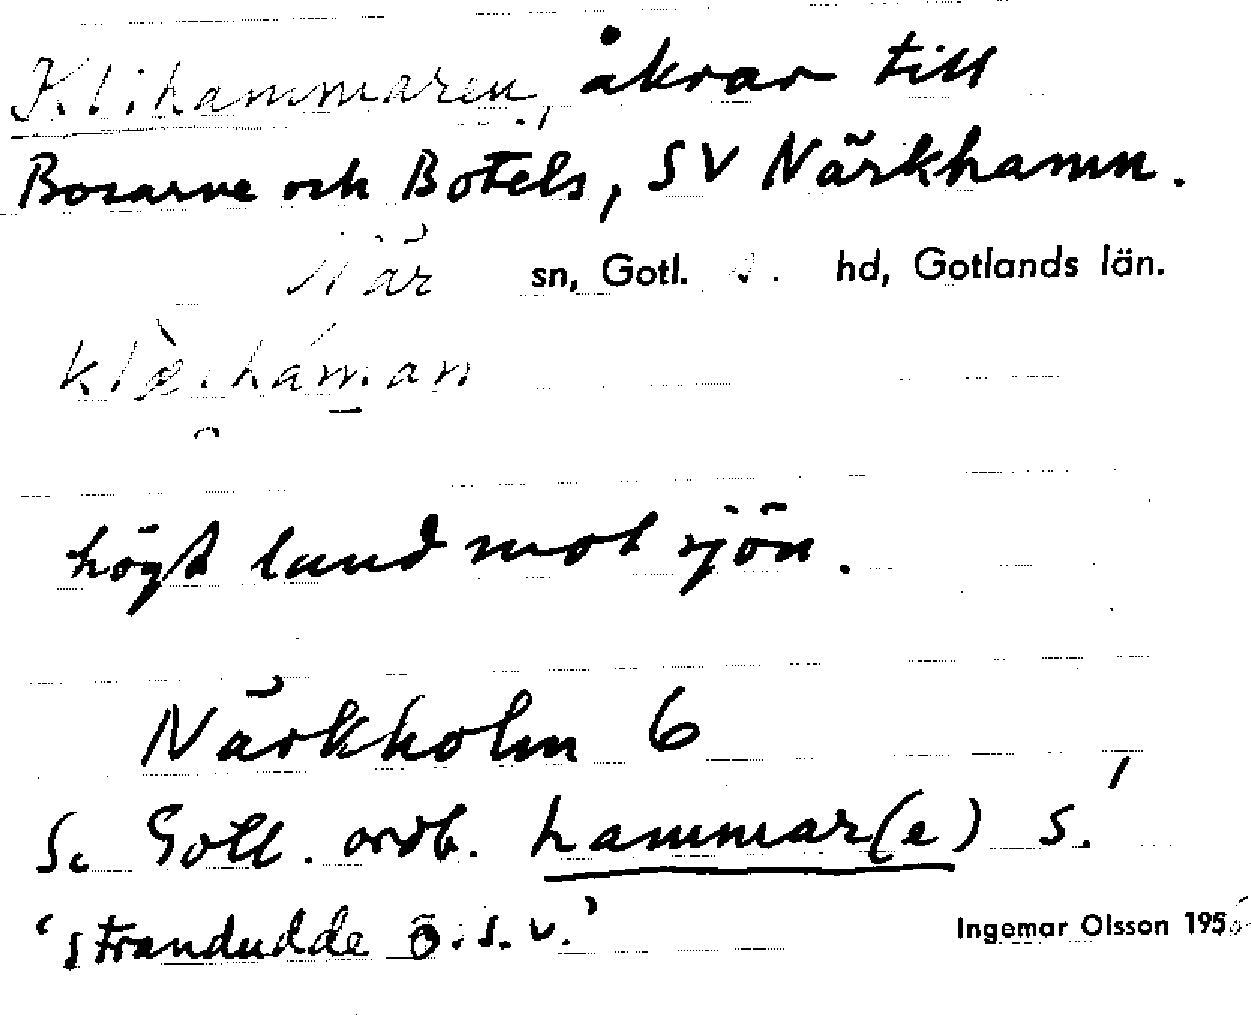 Klihammaren, åkrar till
Bosarve och Botels, SV Närkhamn.
När sn, Gotl. s. hd, Gotlands län.
högt land mot sjön.
Närkholm 6
S. Gotl. ordb. hammar(e) s.
'strandudde o.s.v.'
Ingemar Olsson 195